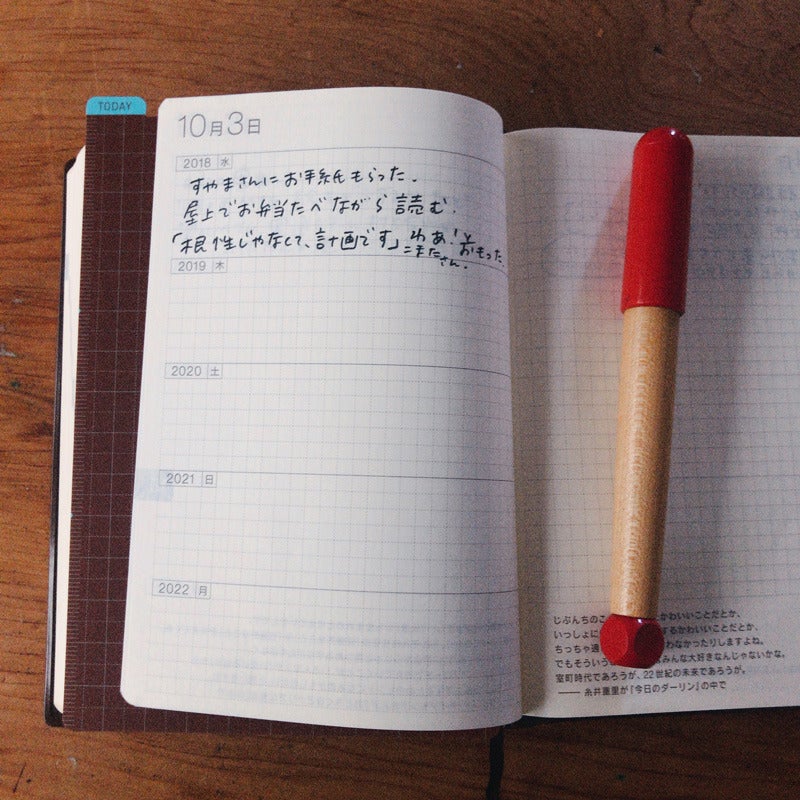 TODAY
10月3日
2018 水
すやまさんにお手紙もらった.
屋上でお弁当たべながら読む.
「根性じゃなくて、計画です」わあ!とおもった
こまたさん.
2019 木
2020 土
2021 日
2022 月
じぶんちのこ かわいいことだとか、
いっしょに するかわいいことだとか、
ちっちゃ わなかったりしますよね。
でもそういう みんな大好きなんじゃないかな。
室町時代であろうが、22世紀の未来であろうが。
―― 糸井重里が『今日のダーリン』の中で